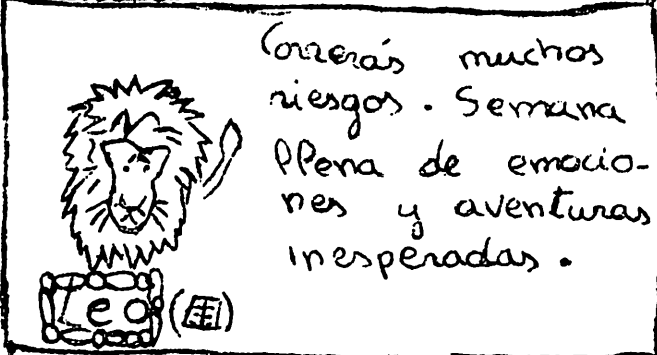 Correrás muchos
riesgos. Semana
llena de emocio-
nes y aventuras
inesperadas.
Leo